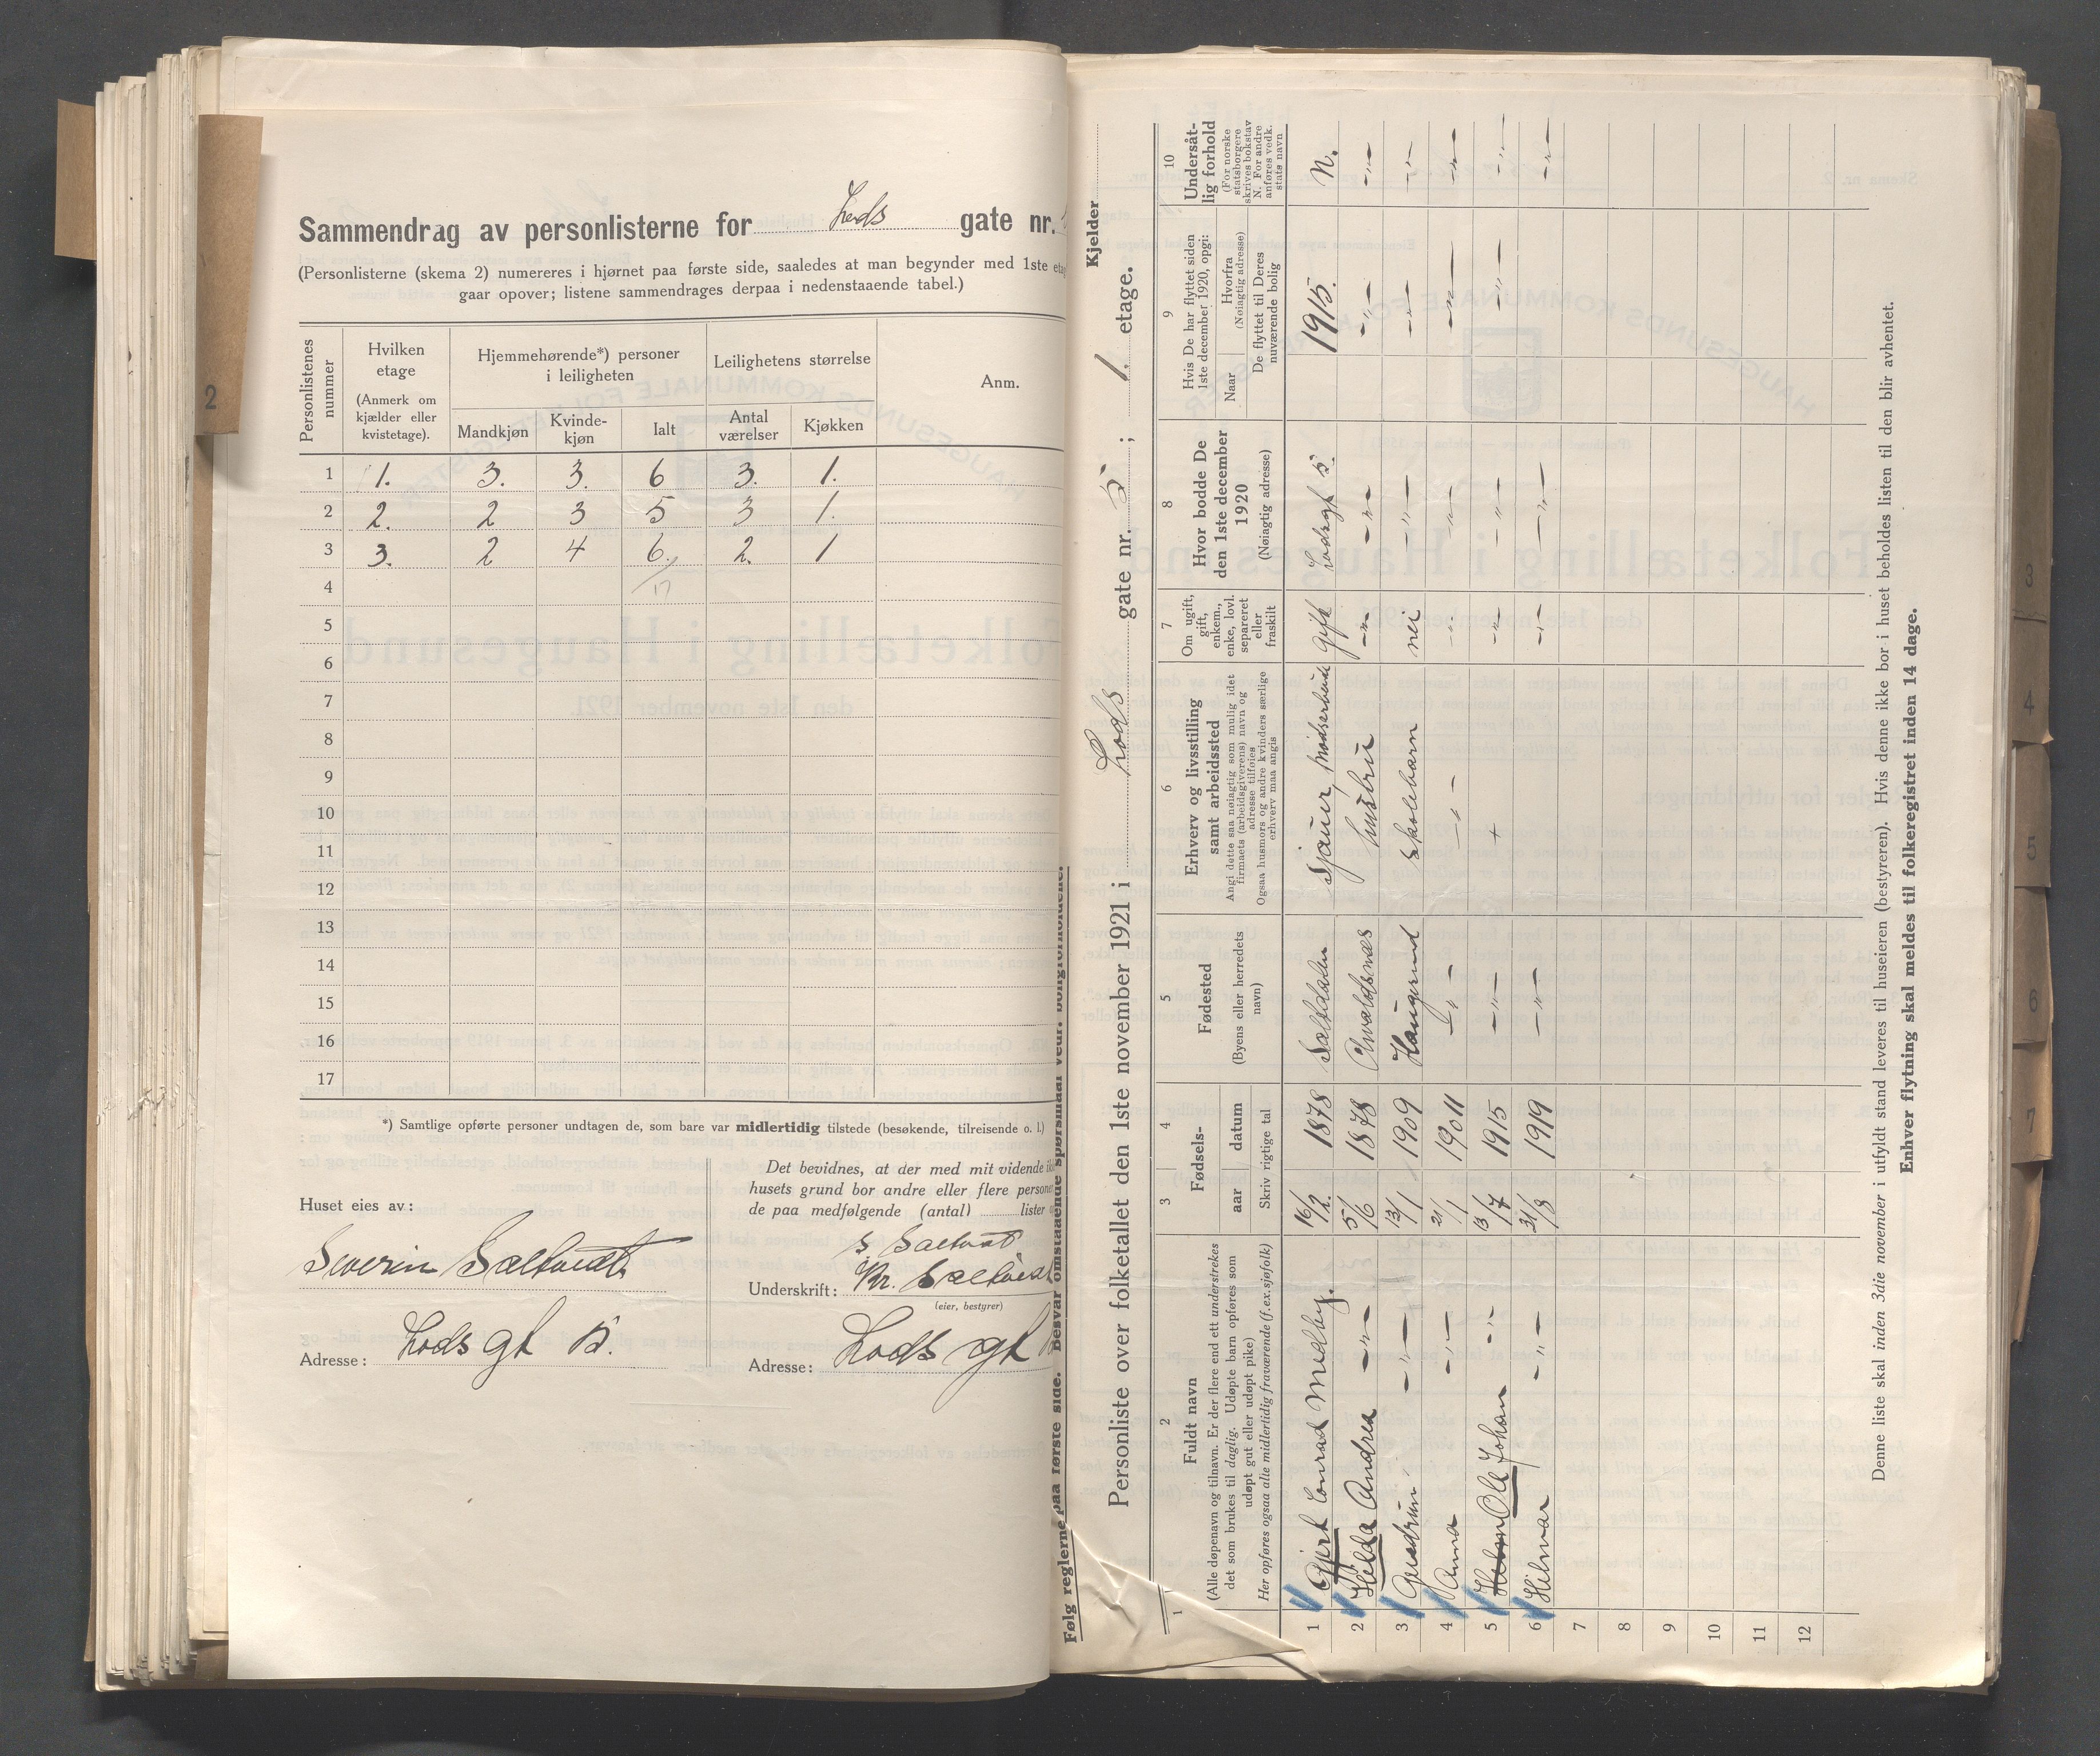 Sammendrag av personlisterne for Lods gate nr.
(Personlisterne (skema 2) numereres i hjørnet paa første side, saaledes at man begynder med 1ste
gaar opover; listene sammendrages derpaa i nedenstaaende tabel.)
Personlistenes nummer
Hvilken etage
(Anmerk om kjælder eller kvistetage).
Hjemmehørende*) personer i leiligheten
Mandkjøn
Kvinde-kjøn
Ialt
Leilighetens størrelse
Antal værelser
Kjøkken
Anm.
1 1. 3. 3. 6 3. 1.
2 2. 2 3 5 3 1.
3 3. 2 4 6. 2. 1
4 17
5
6
7
8
9
10
11
12
13
14
15
16
17
*) Samtlige opførte personer undtagen de, som bare var midlertidig tilstede (besøkende, tilreisende o. l.)
Huset eies av:
Severin Saltvedt
Adresse: Lods gt 5.
Det bevidnes, at der med mit vidende
husets grund bor andre eller flere
de paa medfølgende (antal) lister
S. Saltvedt
Underskrift: Kr. Saltvedt
(eier, bestyrer)
Adresse: Lods gt
2
Følg reglerne paa første side. Besvar omstaaende spørsmaal vedr. boligforholdene.
Personliste over folketallet den 1ste november 1921 i Lods gate nr. 5; 1. etage.
Kjelder
1
2
Fuldt navn
(Alle døpenavn og tilnavn. Er der flere end ett understrekes
det som brukes til daglig. Udøpte barn opføres som
udøpt gut eller udøpt pike)
Her opføres ogsaa alle midlertidig fraværende (f.ex. sjøfolk)
3 4
Fødsels-
aar datum
Skriv rigtige tal
5
Fødested
(Byens eller herredets navn)
6
Erhverv og livsstilling
samt arbeidssted
Angi dette saa nøiagtig som mulig idet
firmaets (arbeidsgiverens) navn og
adresse tilføies
Ogsaa husmors og andre kvinders særlige
erhverv maa angis
7
Om ugift,
gift,
enkem.,
enke, lovl.
separeret
eller
fraskilt
8
Hvor bodde De
den 1ste december
1920
(Nøiagtig adresse)
9
Hvis De har flyttet siden
1ste december 1920, opgi:
Naar
Hvorfra
(Nøiagtig adresse)
De flyttet til Deres
nuværende bolig
10
Undersåt-
lig forhold
(For norske
statsborgere
skrives bokstav
N. For andre
anføres vedk.
stats navn
1 Gjert Conrad Medby. 16/2 1878 Saltdalen Sjauer, gift Lodsgt 5. 1915. N.
2 Hilda Andrea -"- 5/6 1878 Avaldsnes hustru -"- -"- -"- -"-
3 Gudrun -"- 12/1 1909 Haugesund skolebarn nei -"- -"- -"-
4 Anna -"- 21/1 1911 -"- -"- -"- -"- -"- -"-
5 Ole Johan -"- 13/7 1915 -"- + -"- -"- -"- -"-
6 Hilmar -"- 31/8 1919 -"- -"- -"- -"-
7
8
9
10
11
12
Denne liste skal inden 3die november i utfyldt stand leveres til huseieren (bestyreren). Hvis denne ikke bor i huset beholdes listen til den blir avhentet.
Enhver flytning skal meldes til folkeregistret inden 14 dage.
3
4
5
6
7